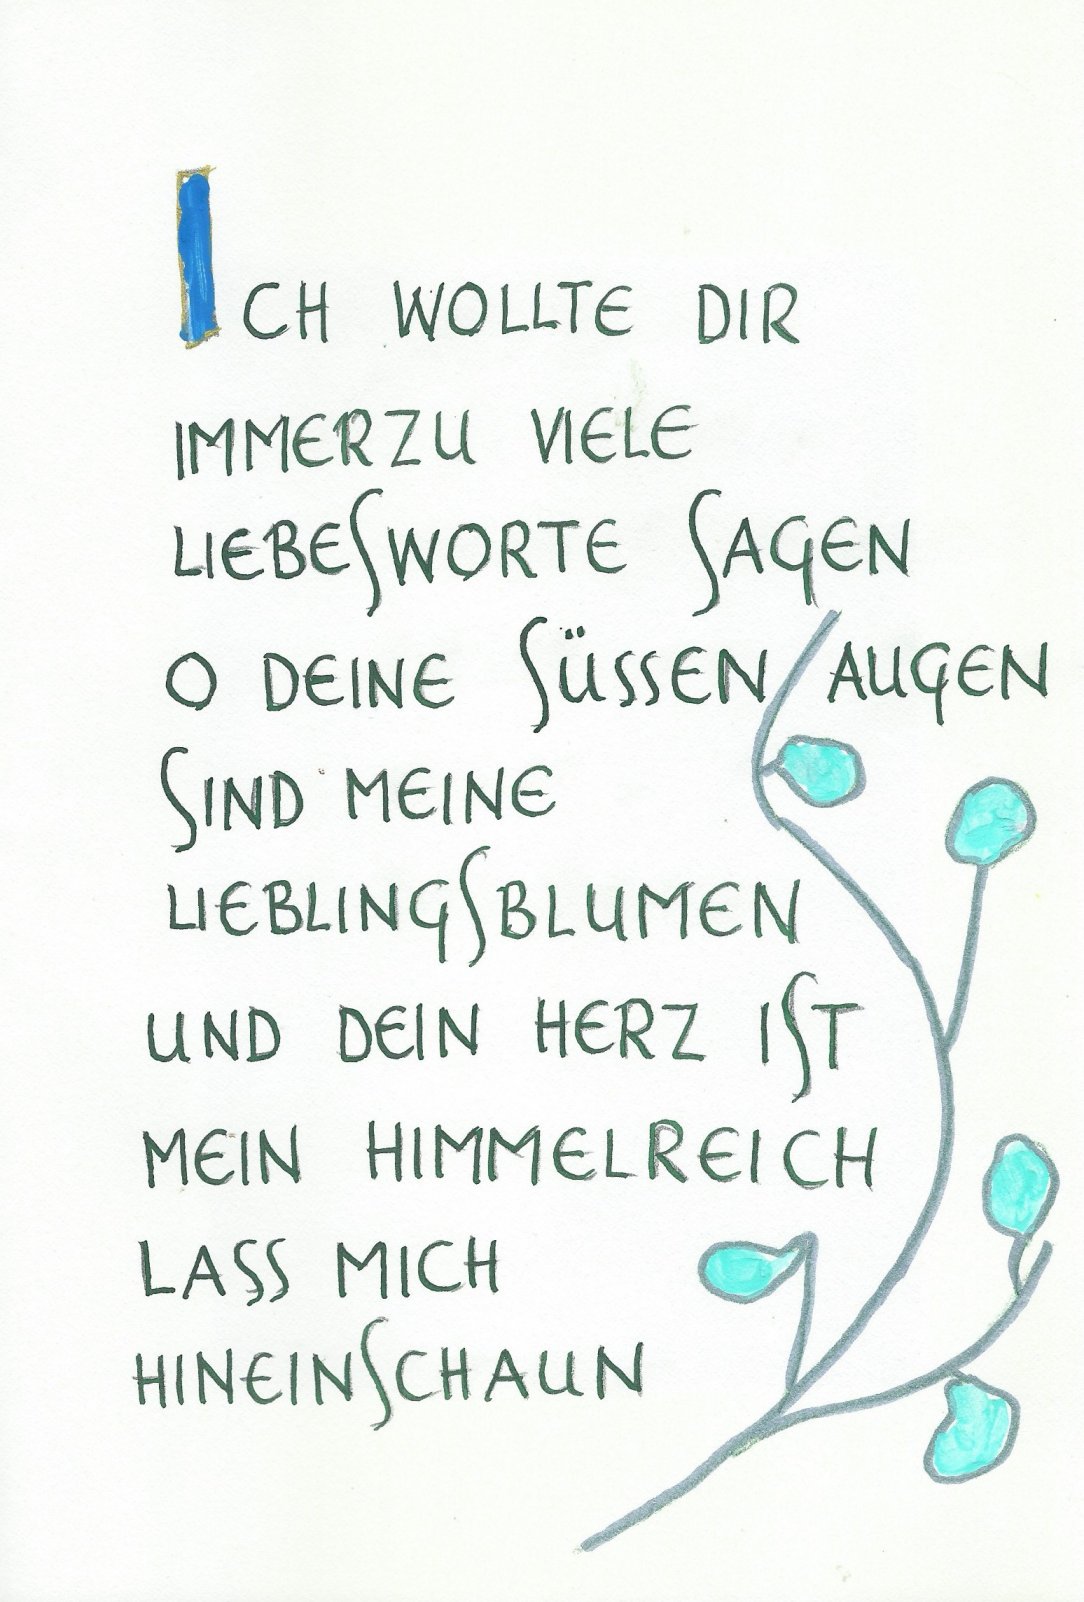 ICH WOLLTE DIR
IMMERZU VIELE
LIEBESWORTE SAGEN
O DEINE SÜSSEN AUGEN
SIND MEINE
LIEBLINGSBLUMEN
UND DEIN HERZ IST
MEIN HIMMELREICH
LASS MICH
HINEINSCHAUN